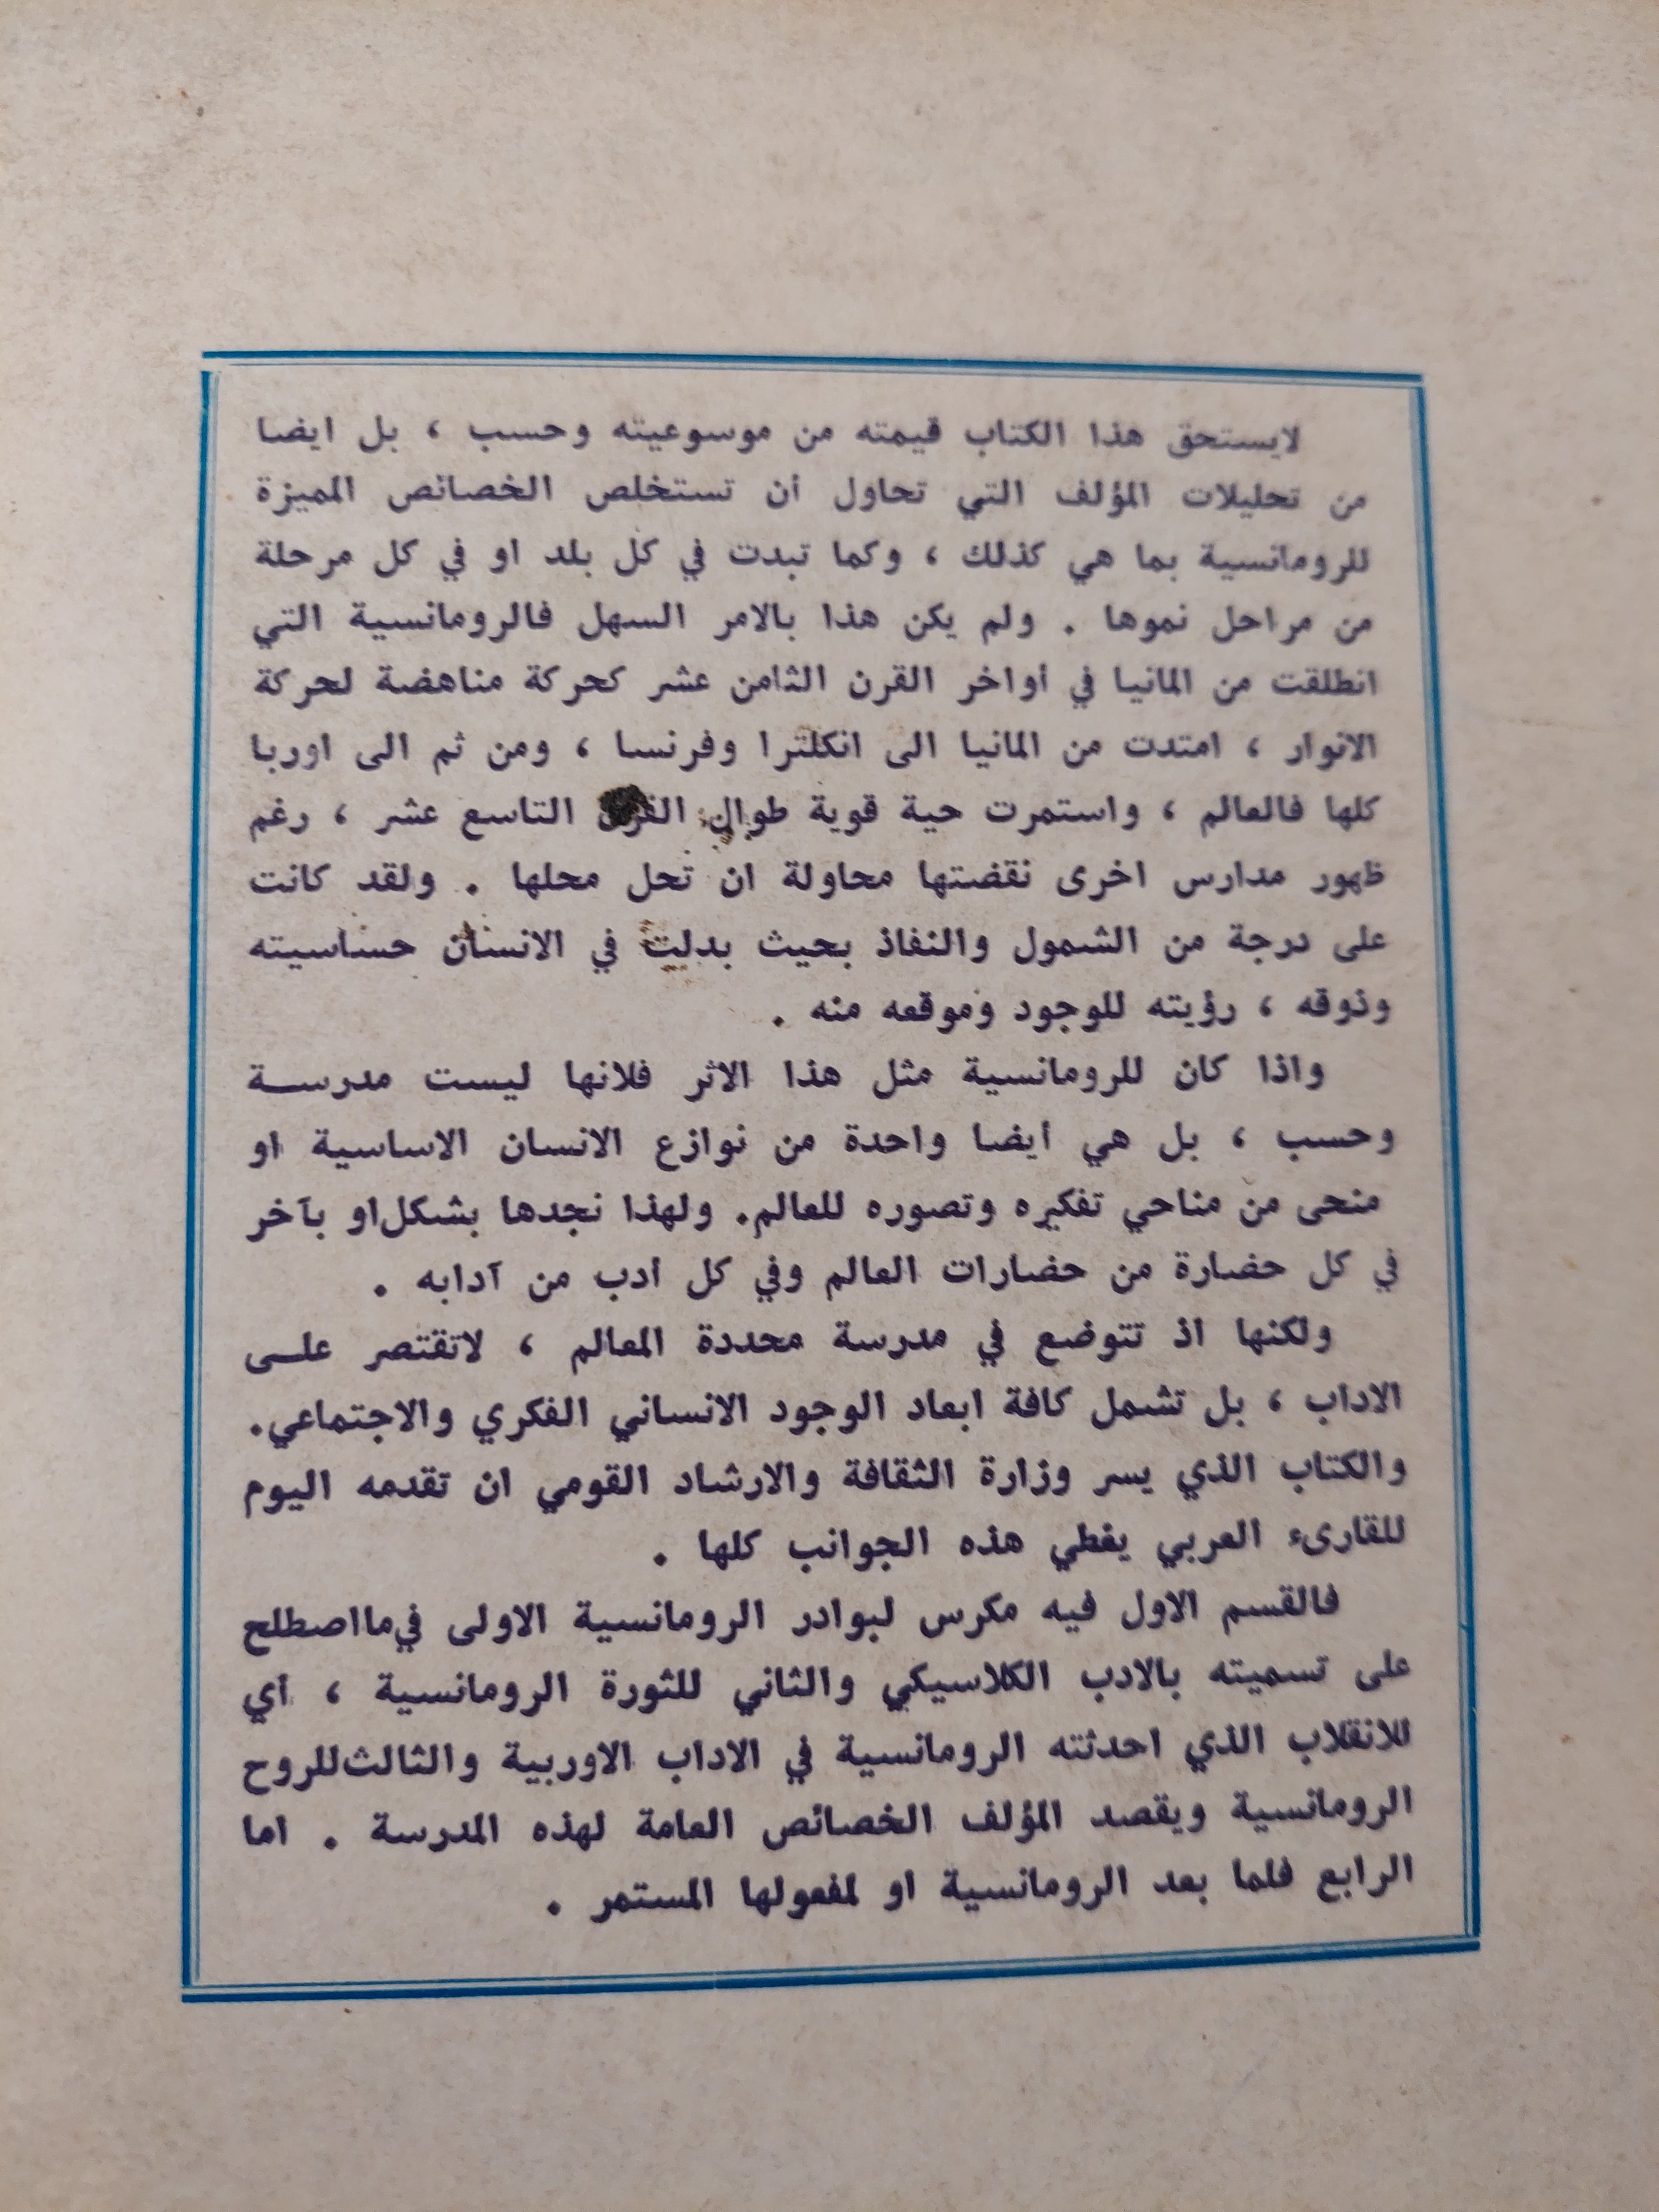 لايستحق هذا الكتاب قيمته من موسوعيته وحسب ، بل ايضا
من تحليلات المؤلف التي تحاول أن تستخلص الخصائص المميزة
للرومانسية بما هي كذلك ، وكما تبدت في كل بلد او في كل مرحلة
من مراحل نموها . ولم يكن هذا بالامر السهل فالرومانسية التي
انطلقت من المانيا في أواخر القرن الثامن عشر كحركة مناهضة لحركة
الانوار ، امتدت من المانيا الى انكلترا وفرنسا ، ومن ثم الى اوربا
كلها فالعالم ، واستمرت حية قوية طوال القرن التاسع عشر ، رغم
ظهور مدارس اخرى نقضتها محاولة ان تحل محلها . ولقد كانت
على درجة من الشمول والنفاذ بحيث بدلت في الانسان حساسيته
وذوقه ، رؤيته للوجود وموقعه منه .
واذا كان للرومانسية مثل هذا الاثر فلانها ليست مدرســة
وحسب ، بل هي ايضا واحدة من نوازع الانسان الاساسية او
منحى من مناحي تفكيره وتصوره للعالم. ولهذا نجدها بشكل او بآخر
في كل حضارة من حضارات العالم وفي كل أدب من آدابه .
ولكنها اذ تتوضع في مدرسة محددة المعالم ، لاتقتصر علــى
الاداب ، بل تشمل كافة ابعاد الوجود الانساني الفكري والاجتماعي.
والكتاب الذي يسر وزارة الثقافة والارشاد القومي ان تقدمه اليوم
للقارىء العربي يغطي هذه الجوانب كلها .
فالقسم الاول فيه مكرس لبوادر الرومانسية الاولى في مااصطلح
على تسميته بالادب الكلاسيكي والثاني للثورة الرومانسية ، أي
للانقلاب الذي احدثته الرومانسية في الاداب الاوربية والثالث للروح
الرومانسية ويقصد المؤلف الخصائص العامة لهذه المدرسة . اما
الرابع فلما بعد الرومانسية او لمفعولها المستمر .